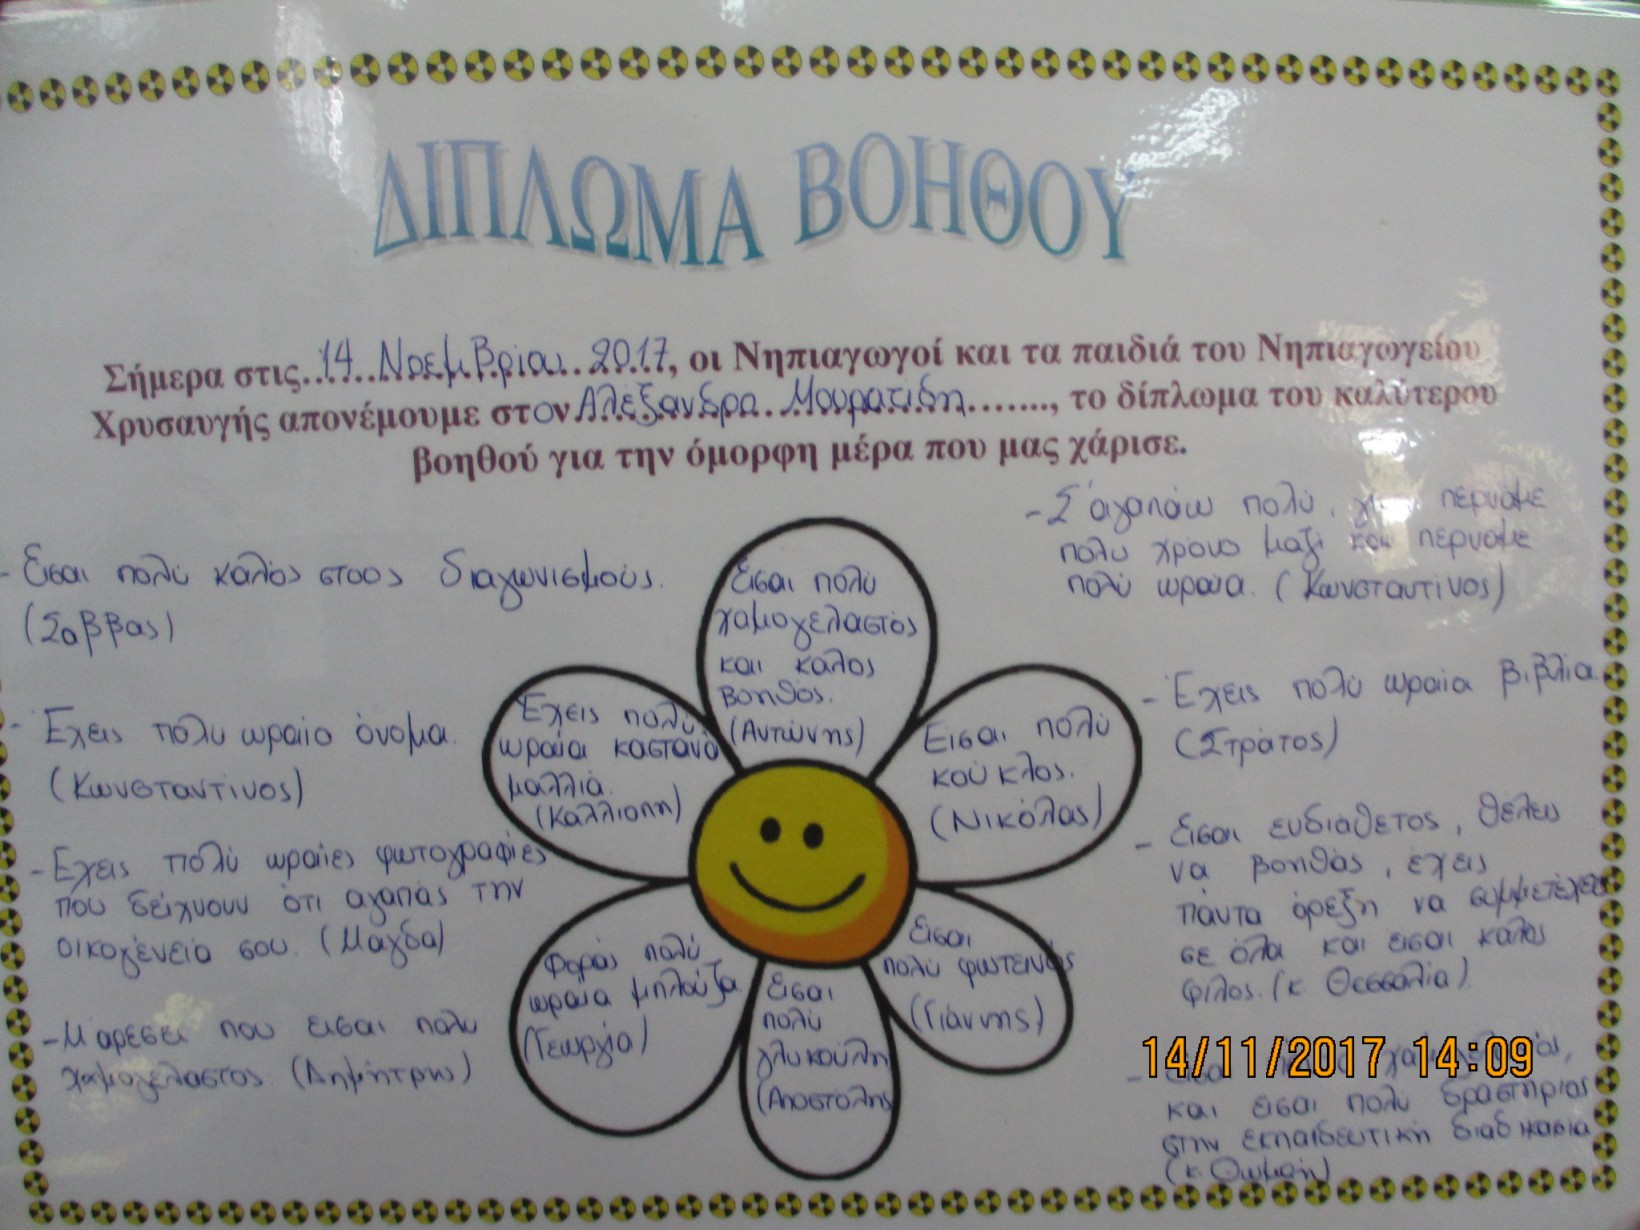 ΔΙΠΛΩΜΑ ΒΟΗΘΟΥ
Σήμερα στις 14 Νοεμβρίου 2017, οι Νηπιαγωγοί και τα παιδιά του Νηπιαγωγείου
Χρυσαυγής απονέμουμε στον Αλέξανδρο Μουρατίδη, το δίπλωμα του καλύτερου
βοηθού για την όμορφη μέρα που μας χάρισε.
- Είσαι πολύ καλός στους διαγωνισμούς.
(Σάββας)
- Έχεις πολύ ωραίο όνομα.
(Κωνσταντίνος)
- Έχεις πολύ ωραίες φωτογραφίες
που δείχνουν ότι αγαπάς την
οικογένειά σου. (Μάγδα)
- Μ'αρέσει που είσαι πολύ
χαμογελαστός (Δημήτρης)
Είσαι πολύ
χαμογελαστός
και καλός
βοηθός.
(Αντώνης)
Έχεις πολύ
ωραία καστανά
μαλλιά.
(Καλλιόπη)
Είσαι πολύ
κούκλος.
(Νικόλας)
Φοράς πολύ
ωραία μπλούζα
(Γεωργία)
Είσαι
πολύ
γλυκούλη
(Αποστόλης
Είσαι
πολύ φωτεινός
(Γιάννης)
- Σ'αγαπάω πολύ, περνάμε
πολύ χρόνο μαζί και περνάμε
πολύ ωραία. (Κωνσταντίνος)
- Έχεις πολύ ωραία βιβλία.
(Στράτος)
- Είσαι ευδιάθετος, θέλεις
να βοηθάς, έχεις
πάντα όρεξη να συμμετέχεις
σε όλα και είσαι καλός
φίλος. (κ. Θεσσαλία)
14/11/2017 14:09
και είσαι πολύ δραστήριος
στην εκπαιδευτική διαδικασία
(κ. Θωμαή)